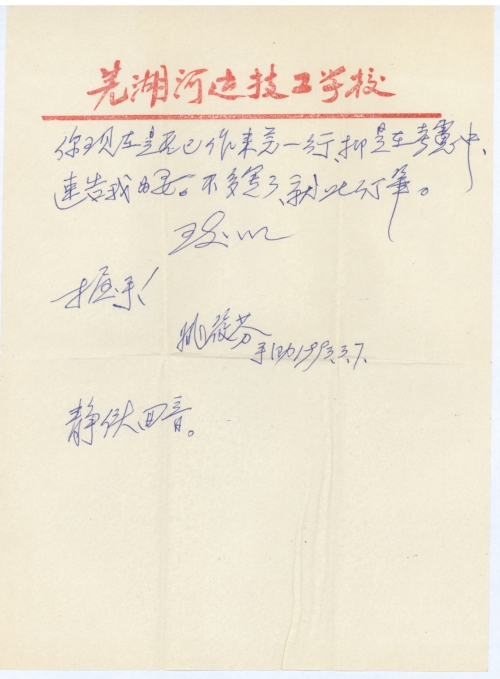 芜湖河运技工学校
你现在是否已作来芜一行,抑是在考虑中,
速告我为要。不多写了,就此订笔。
致以
握手!
姚筱芬
手动1993.3.7.
静候回音。